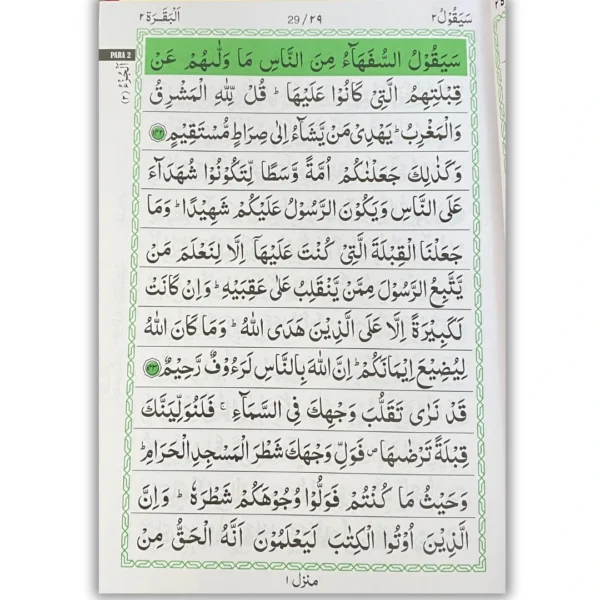 سَيَقُوْلُ ٢
29 / ٢٩
اَلْبَقَرَة ٢
PARA 2
اَلْجُزْءُ (٢)
سَيَقُوْلُ السُّفَهَآءُ مِنَ النَّاسِ مَا وَلّٰىهُمْ عَنْ
قِبْلَتِهِمُ الَّتِيْ كَانُوْا عَلَيْهَا ؕ قُلْ لِّلّٰهِ الْمَشْرِقُ
وَالْمَغْرِبُ ؕ يَهْدِيْ مَنْ يَّشَآءُ اِلٰى صِرَاطٍ مُّسْتَقِيْمٍ ١٤٢
وَكَذٰلِكَ جَعَلْنٰكُمْ اُمَّةً وَّسَطًا لِّتَكُوْنُوْا شُهَدَآءَ
عَلَى النَّاسِ وَيَكُوْنَ الرَّسُوْلُ عَلَيْكُمْ شَهِيْدًا ؕ وَمَا
جَعَلْنَا الْقِبْلَةَ الَّتِيْ كُنْتَ عَلَيْهَآ اِلَّا لِنَعْلَمَ مَنْ
يَّتَّبِعُ الرَّسُوْلَ مِمَّنْ يَّنْقَلِبُ عَلٰى عَقِبَيْهِ ؕ وَاِنْ كَانَتْ
لَكَبِيْرَةً اِلَّا عَلَى الَّذِيْنَ هَدَى اللّٰهُ ؕ وَمَا كَانَ اللّٰهُ
لِيُضِيْعَ اِيْمَانَكُمْ ؕ اِنَّ اللّٰهَ بِالنَّاسِ لَرَءُوْفٌ رَّحِيْمٌ ١٤٣
قَدْ نَرٰى تَقَلُّبَ وَجْهِكَ فِي السَّمَآءِ ۚ فَلَنُوَلِّيَنَّكَ
قِبْلَةً تَرْضٰىهَا ص فَوَلِّ وَجْهَكَ شَطْرَ الْمَسْجِدِ الْحَرَامِ ؕ
وَحَيْثُ مَا كُنْتُمْ فَوَلُّوْا وُجُوْهَكُمْ شَطْرَهٗ ؕ وَاِنَّ
الَّذِيْنَ اُوْتُوا الْكِتٰبَ لَيَعْلَمُوْنَ اَنَّهُ الْحَقُّ مِنْ
منزل ١